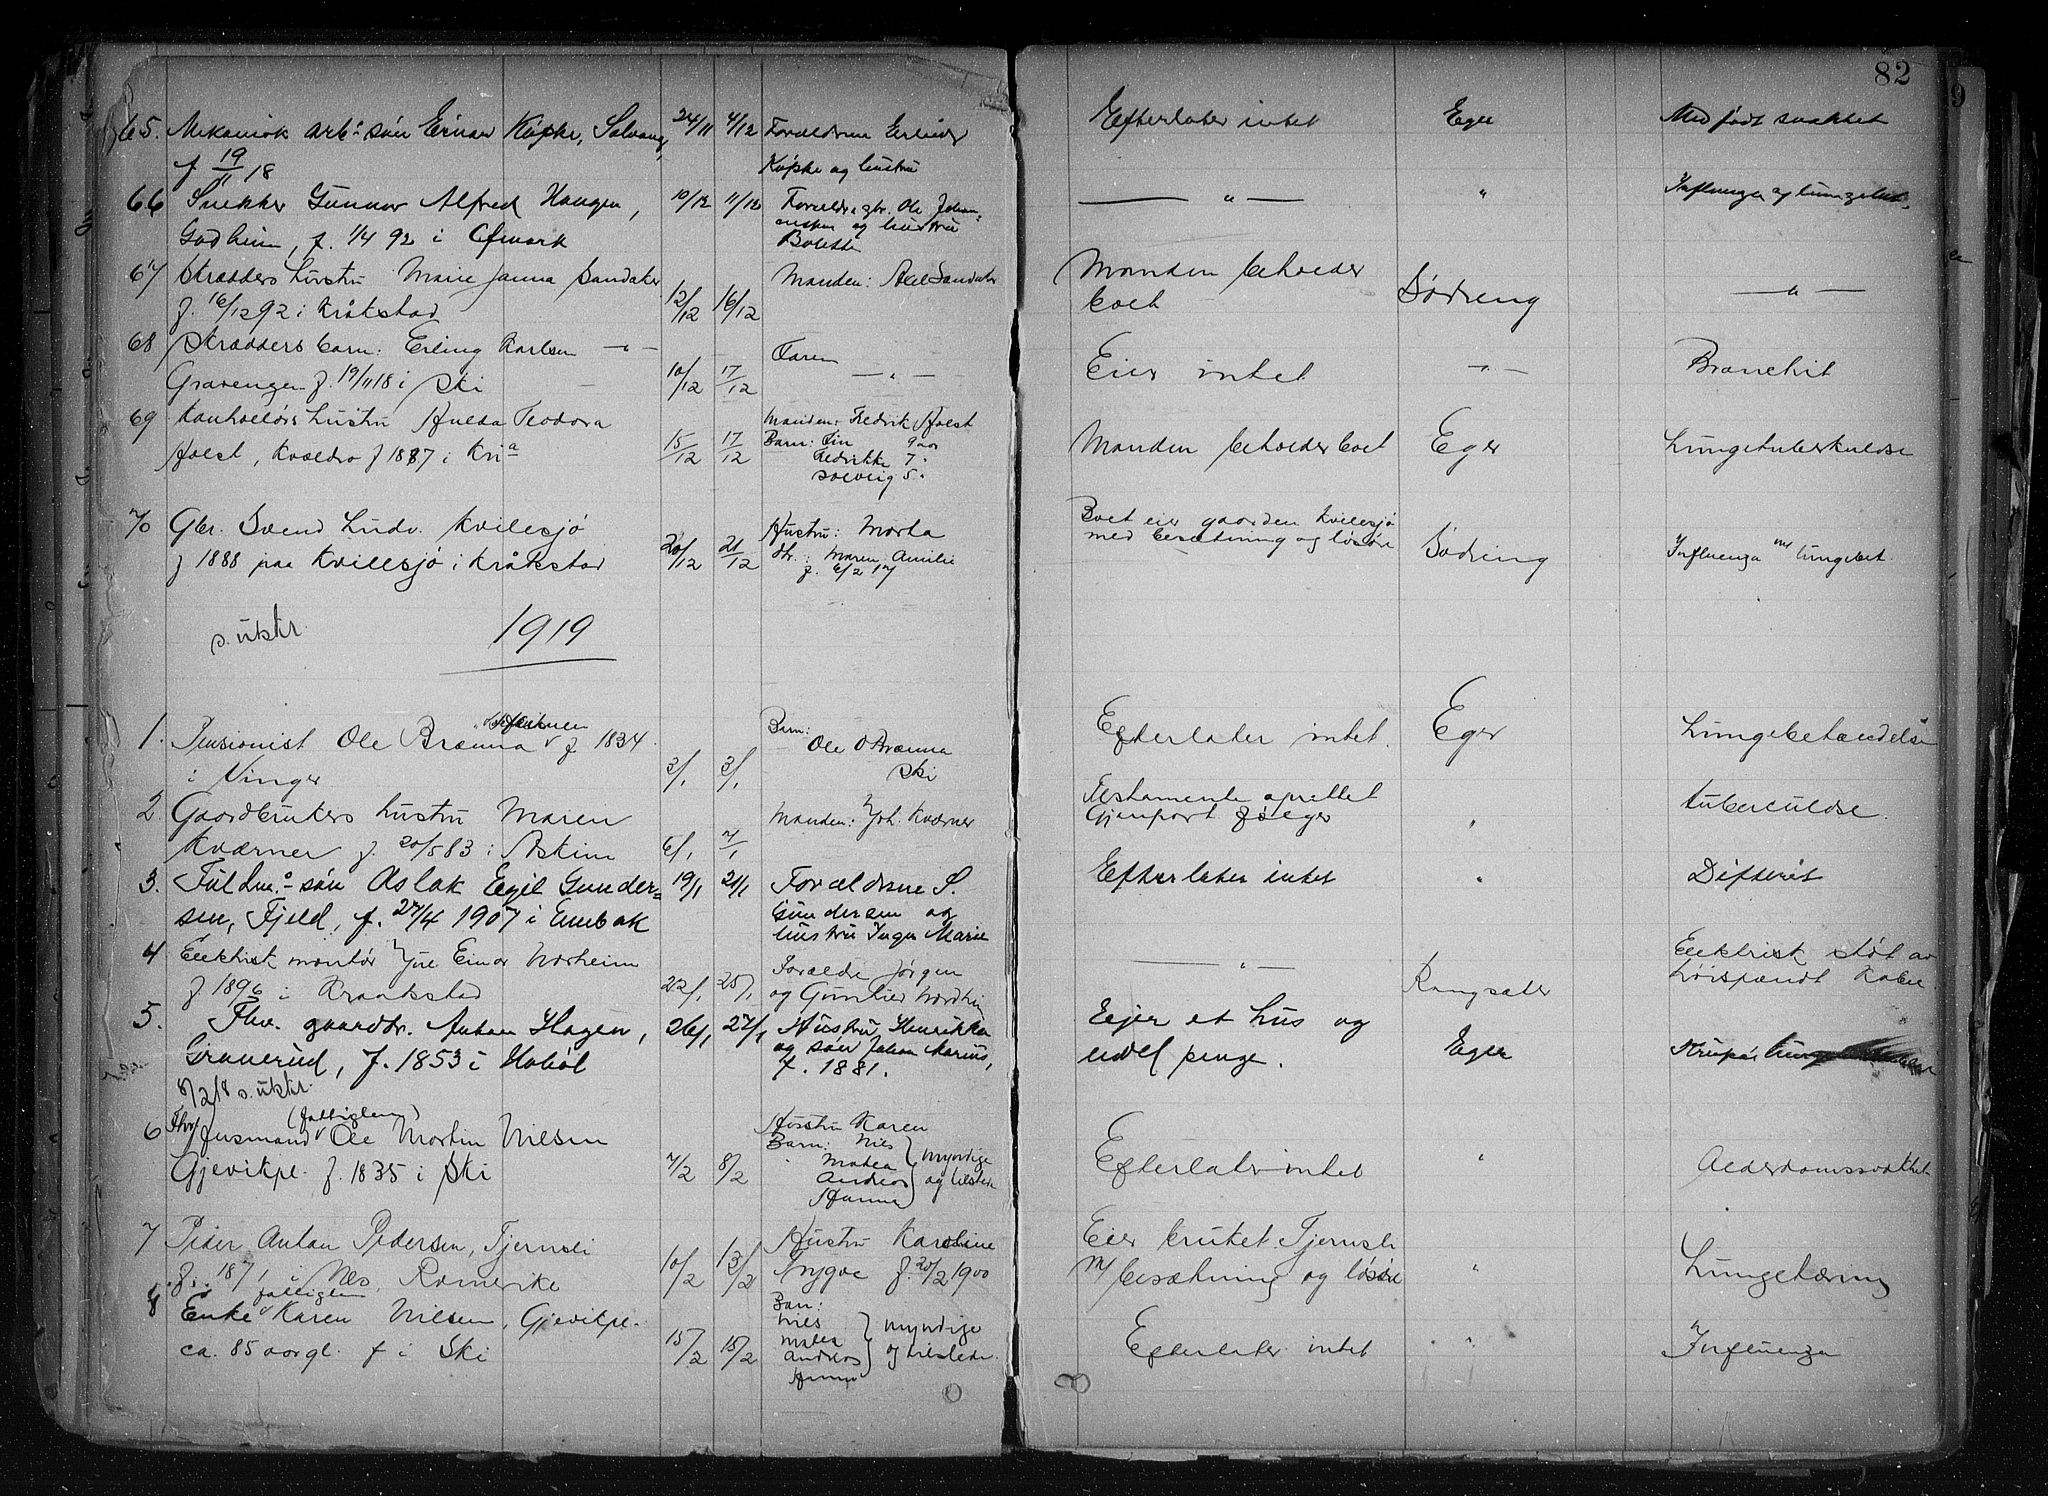 82
65. Mekanisk arb.s søn Einar Köpke, Solvang, 24/11 4/12 Forældrene Erling Efterlater intet Eger Medfødt svakhet
f 19/11 18 Köpke og hustru
66 Snekker Gunnar Alfred Haugen, 10/12 11/12 Forældre gbr. Ole Johan- — " — " Influenza og lungebet.
Godheim, f. 1/4 92 i Ømark ansen og hustru
Bolette
67 Skrædders hustru Marie Janna Sandaker 12/12 16/12 Manden: Axel Sandaker Manden beholder Sødreng — " —
f. 16/12 92 i Kråkstad boet
68 Skrædders barn: Erling Karlsen — " — 10/12 17/12 Faren Eier intet — " — Bronchit
Gravengen f. 19/11 18 i Ski — " —
69 hustru Hulda Teodora 15/12 17/12 Manden: Fredrik Holst Manden beholder boet Eger Lungetuberkulose
Holst, Kvældro f 1887 i Kria Barn: 9 aar
Fredrikke 7 "
Solveig 5 "
70 Gbr. Svend Ludv. Kvilesjø 20/12 21/12 Hustru: Marta Boet eier gaarden Kvilesjø Sødreng Influenza m/ lungebet.
f 1888 paa Kvilesjø i Kråkstad dtr.: Maren Amilie med besætning og løsøre
f. 6/2 17
s. utskr. 1919
1. Pensionist Ole Brænna f 1834 3/1 3/1 Barn: Efterlater intet. Eger Lungebetændelse
i Vinger Ole O Brænna
Ski
2. Gaardbrukers hustru Maren 6/1 7/1 Manden: Joh. Kværner Testamente oprettet " tuberculose.
Kværner f. 20/5 83 i Askim Gjenpart følger
3. Fuldm.s søn Aslak Egil Gunder- 19/1 21/1 Forældrene S. Efterlater intet " Difterit
sen, Fjeld, f. 27/4 1907 i Enebak Gundersen og
hustru Inga Marie
4 Elektrisk montør Einar Nordheim 22/1 25/1 Forældre Jørgen — " — Langsæter Elektrisk støt av
f. 1896 i Kraakstad og Gunhild Nordheim høispændt kabel
5. Fhv. gaardbr. Anton Hagen, 26/1 27/1 Hustru Henrikke Eier et hus og Eger Krupøs
Granerud, f. 1853 i Hobøl og søn Johan Marius, endel penge.
f. 1881.
8/2 18 s. utskr.
6 Fhv. Husmand (fattiglem) Ole Martin Nilsen 7/2 8/2 Hustru Karen Efterlater intet " Alderdomssvakhet
Gjevikpl. f. 1835 i Ski Barn: Nils
" Matea myndige
Andreas og tilstede
Hanna
7 Peder Anton Pedersen, Tjernsli 10/2 13/2 Hustru Karoline Eier bruket Tjernsli " Lungetæring
f. 1871 i Nes, Romerike Trygve f. 20/2 1900 m/ besætning og løsøre
8 Enke fattiglem Karen Nilsen, Gjevikpl. 15/2 15/2 Barn: Efterlater intet " Influenza
ca. 85 aar gl. f i Ski Nils
Matea myndige
Andreas og tilstede.
Hanna